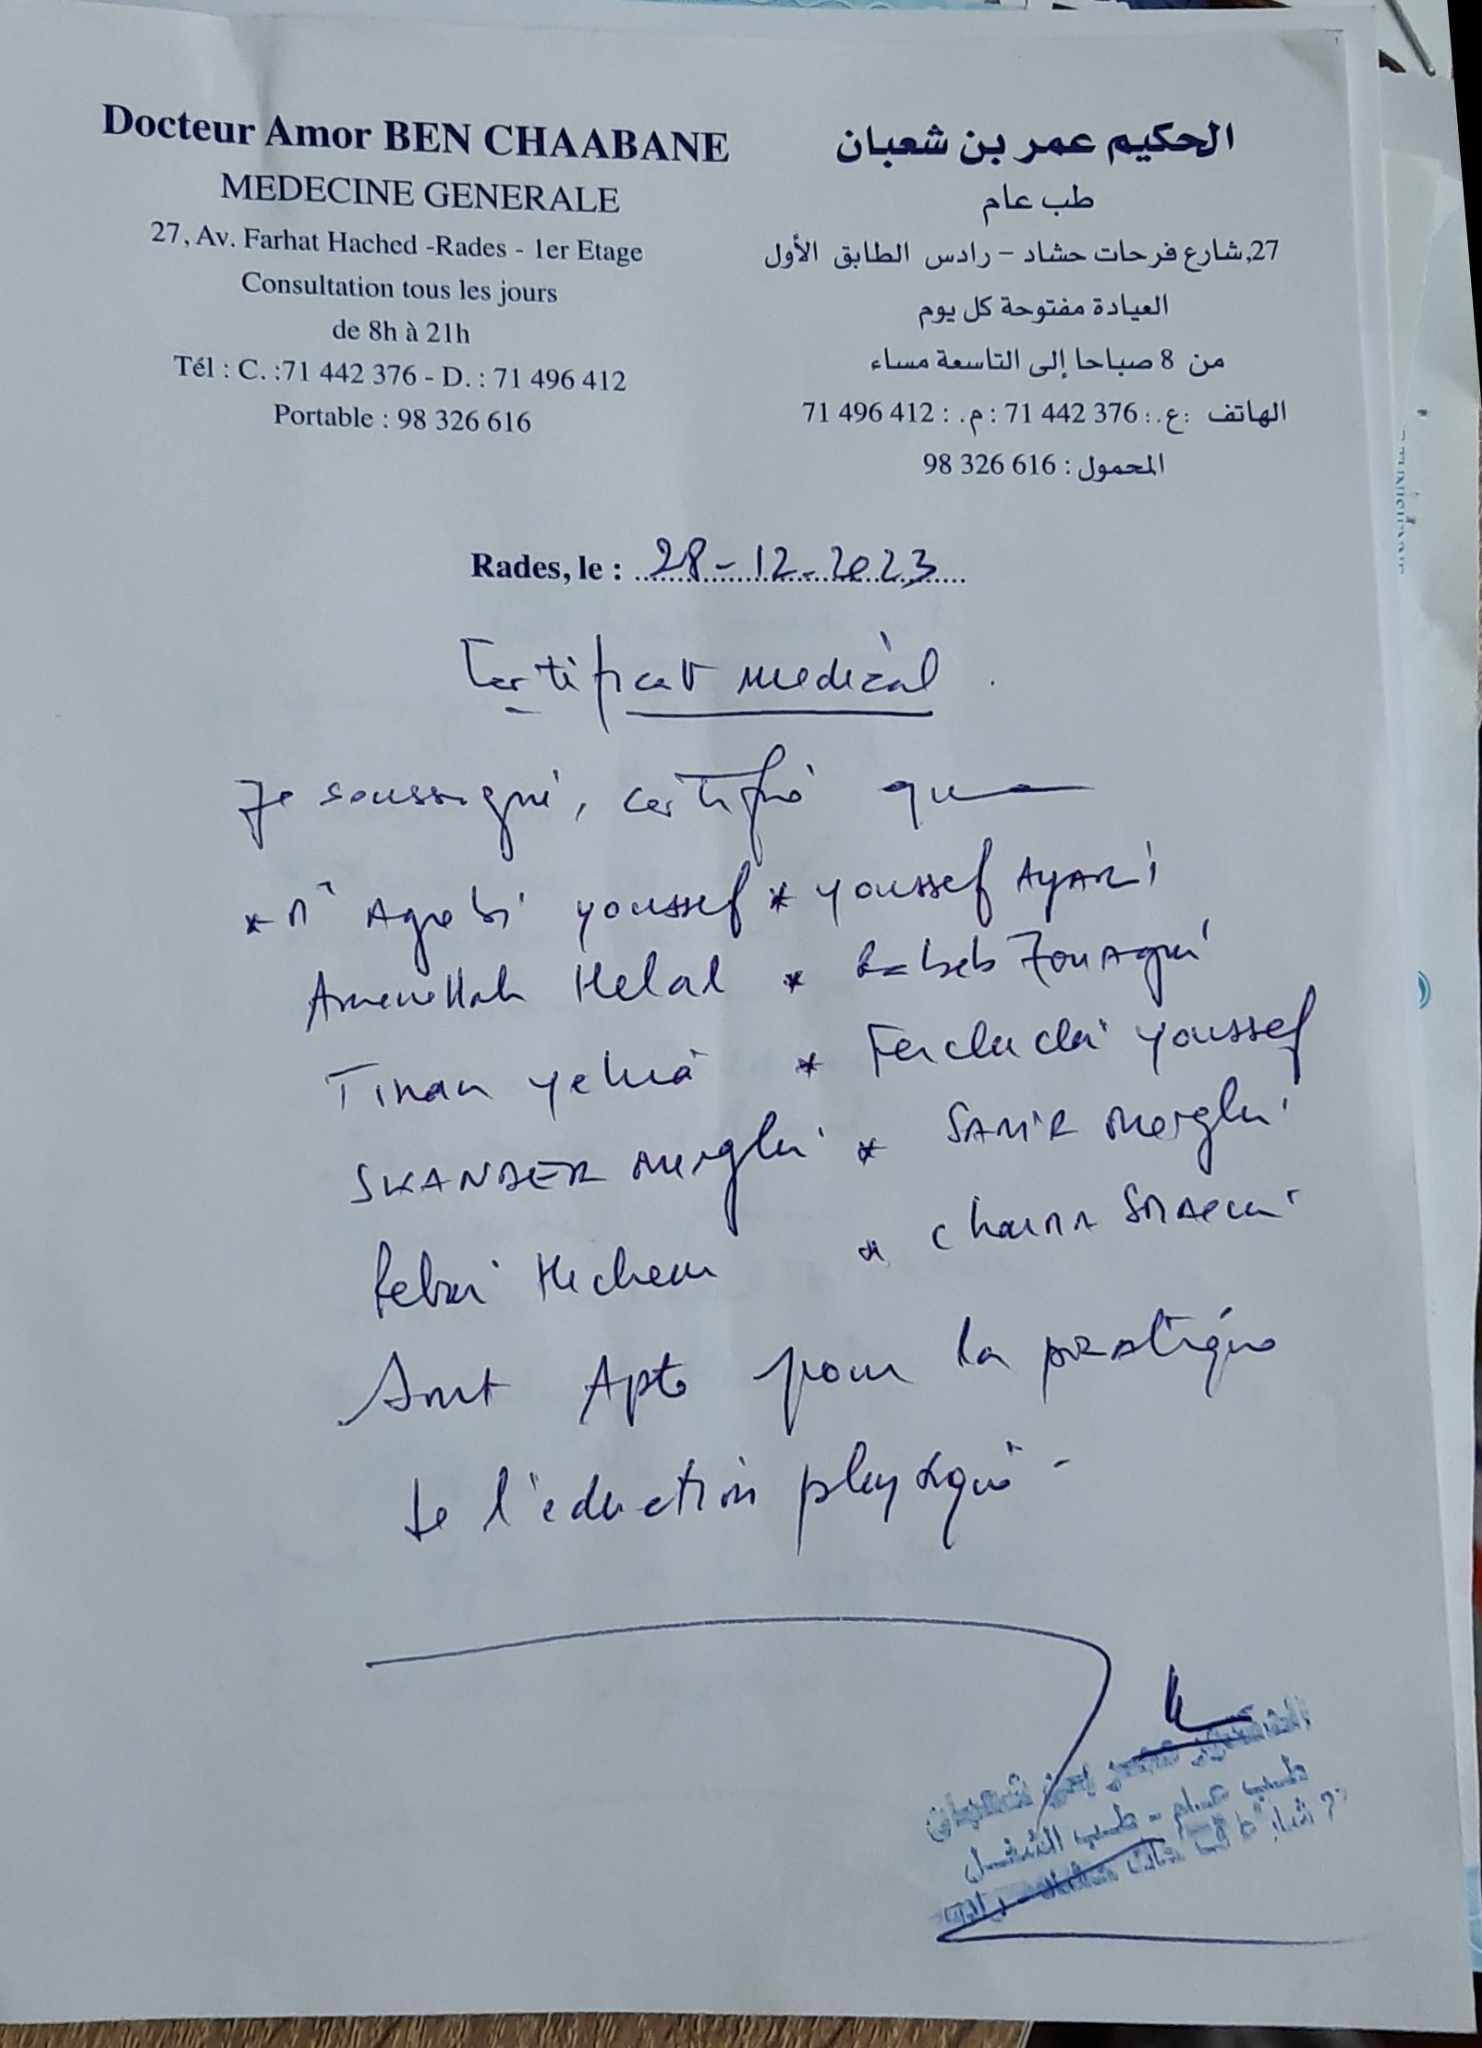 Docteur Amor BEN CHAABANE
MEDECINE GENERALE
27, Av. Farhat Hached -Rades - 1er Etage
Consultation tous les jours
de 8h à 21h
Tél : C. :71 442 376 - D. : 71 496 412
Portable : 98 326 616
الحكيم عمر بن شعبان
طب عام
27,شارع فرحات حشاد – رادس الطابق الأول
العيادة مفتوحة كل يوم
من 8 صباحا إلى التاسعة مساء
الهاتف :ع.: 71 442 376 : م. : 71 496 412
المحمول : 98 326 616
Rades, le : 28-12-2023
Certificat medical
Je soussigné, certifie que
* youssef * youssef AYARI
Amenallah Helal * Rabeb Zouaghi
yehia * youssef
SKANDER Merghi * SAMIR Merghi
Hichem *
Sont Apte pour la pratique
de l'education physique -
الدكتور عمر بن شعبان
طب عام - طب الشغل